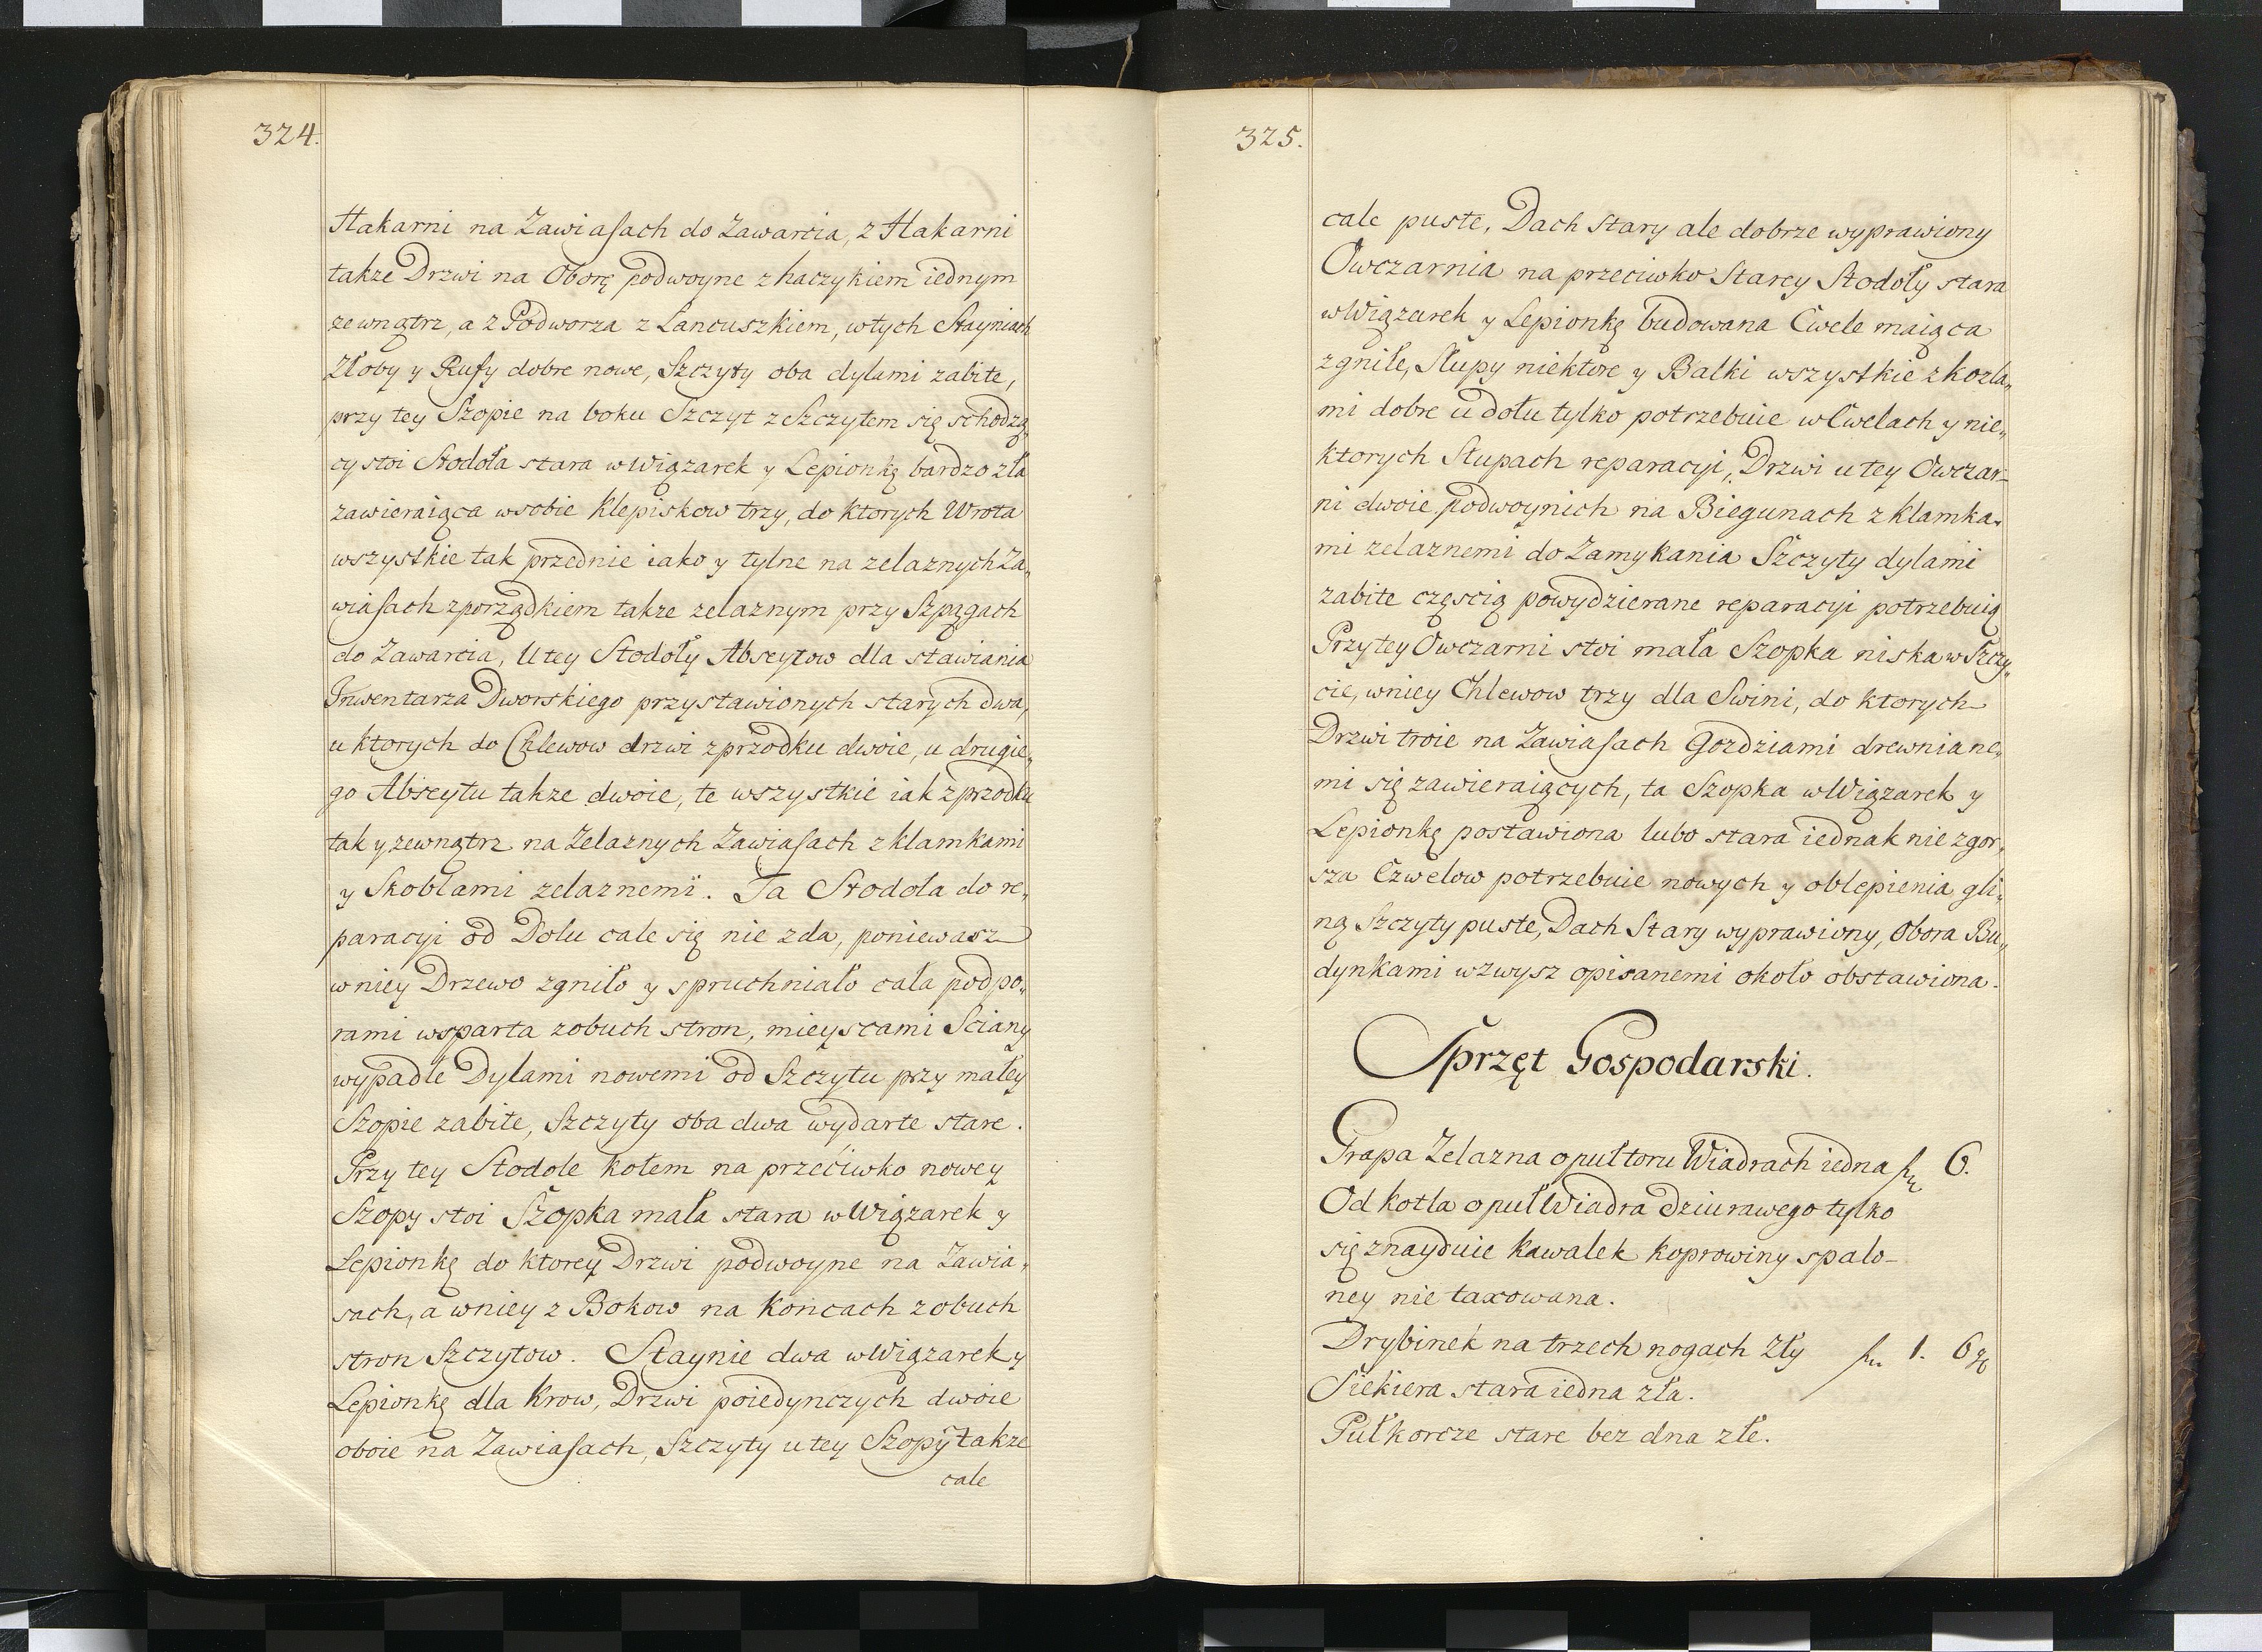 324.
Hakarni na Zawiasach do Zawarcia, z Hakarni
takze Drzwi na Oborę podwoyne z haczykiem iednym
zewnątrz, a z Podworza z Lancuszkiem, wtych Stayniach
Złoby y Rufy dobre nowe, Szczyty oba dylami zabite,
przy tey Szopie na boku Szczyt z Szczytem się schodzą„
cy stoi Stodoła stara w Wiązarek y Lepionkę bardzo zła
zawieraiąca wsobie Klepiskow trzy, do ktorych Wrota
wszystkie tak przednie iako y tylne na zelaznych Za„
wiasach z porządkiem takze zelaznym przy Szpągach
do Zawarcia, U tey Stodoły Abseytow dla stawiania
Inwentarza Dworskiego przystawionych starych dwa,
u ktorych do Chlewow drzwi z przodku dwoie, u drugie„
go Abseytu takze dwoie, te wszystkie iak z przodku
tak y zewnątrz na Zelaznych Zawiasach z klamkami
y Skoblami zelaznemi. Ta Stodola do re„
paracyi od Dolu cale się nie zda, poniewasz
wniey Drzewo zgniło y spruchniało cała podpo„
rami wsparta zobuch stron, mieyscami Sciany
wypadłe Dylami nowemi od Szczytu przy małey
Szopie zabite, Szczyty oba dwa wydarte stare.
Przy tey Stodole kołem na przeciwko nowey
Szopy stoi Szopka mała stara w Wiązarek y
Lepionkę do ktorey Drzwi podwoyne na Zawia„
sach, a wniey z Bokow na koncach zobuch
stron Szczytow. Staynie dwa w Wiązarek y
Lepionkę dla Krow, Drzwi poiedynczych dwoie
oboie na Zawiasach, Szczyty u tey Szopy takze
cale
325.
cale puste, Dach stary ale dobrze wyprawiony
Owczarnia na przeciwko Starey Stodoły stara
w Wiązarek y Lepionkę budowana Cwele maiąca
zgniłe, Słupy niektore y Balki wszystkie z kozla„
mi dobre u dołu tylko potrzebuie w Cwelach y nie„
ktorych Słupach reparacyi, Drzwi u tey Owczar„
ni dwoie podwoynich na Biegunach z klamka„
mi zelaznemi do Zamykania Szczyty dylami
zabite częscią powydzierane reparacyi potrzebuią
Przy tey Owczarni stoi mała Szopka niska w Szczy„
cie, wniey Chlewow trzy dla Swini, do ktorych
Drzwi troie na Zawiasach Gozdziami drewniane„
mi się zawieraiących, ta Szopka w Wiązarek y
Lepionkę postawiona lubo stara iednak nie zgor„
sza Czwelow potrzebuie nowych y oblepienia gli„
ną Szczyty puste, Dach Stary wyprawiony, Obora Bu„
dynkami wzwysz opisanemi około obstawiona.
Sprzęt Gospodarski.
Grapa Zelazna o pułtoru Wiadrach iedna 6.
Od kotla o puł Wiadra Dziurawego tylko
się znayduie kawalek koprowiny spalo-
ney nie taxowana.
Drybinek na trzech nogach zły 1. 6
Siekiera stara iedna zła.
Pułkorcze stare bez dna złe.